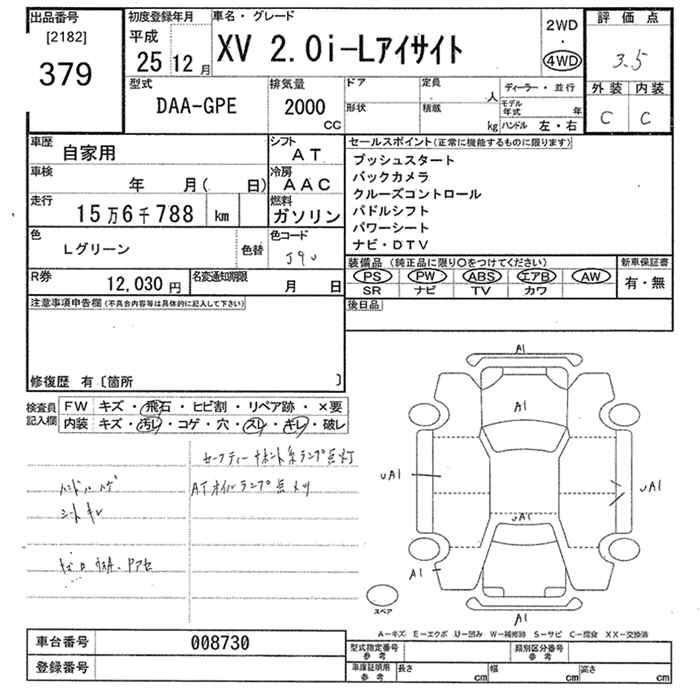 出品番号
[2182]
379
初度登録年月
平成
25 12月
車名・グレード
XV 2.0i-Lアイサイト
2WD
・
4WD
評価点
3.5
外装 内装
C C
型式
DAA-GPE
排気量
2000
CC
ドア
形状
定員
人
積載
kg
ディーラー・並行
モデル年式 年
ハンドル 左・右
車歴
自家用
シフト
AT
車検
年 月( 日)
冷房
AAC
走行
15万6千788 km
燃料
ガソリン
色
Lグリーン
色替
色コード
J9U
R券
12,030円
名変通知期限
月 日
セールスポイント(正常に機能するものに限ります)
プッシュスタート
バックカメラ
クルーズコントロール
パドルシフト
パワーシート
ナビ・DTV
装備品(純正品に限り○をつけてください)
PS PW ABS エアB AW
SR ナビ TV カワ
新車保証書
有・無
後日品
注意事項申告欄(不具合内容等は具体的に記入して下さい)
修復歴 有〔箇所 〕
検査員記入欄
FW キズ・飛石・ヒビ割・リペア跡・×要
内装 キズ・汚レ・コゲ・穴・スレ・キレ・破レ
ランプ点灯
ATオイルランプ点灯
ハンドルハゲ
シートキレ
A1
A1
UA1
UA1
UA1
A1
A1
スペア
A-キズ E-エクボ U-凹み W-補修跡 S-サビ C-腐食 XX-交換済
車台番号
008730
登録番号
型式指定番号
参考
類別区分番号
参考
車庫証明用
参考
長さ cm
幅 cm
高さ cm